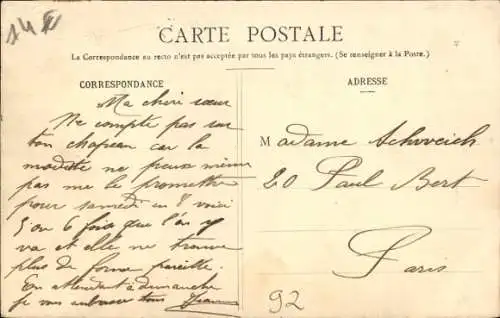 14 €
CARTE POSTALE
La Correspondance au recto n'est pas acceptée par tous les pays étrangers. (Se renseigner à la Poste.)
CORRESPONDANCE
Ma chère sœur
Ne compte pas sur
ton chapeau car la
modiste ne peux même
pas me le promettre
pour samedi en 8 voici
5 ou 6 fois que l'on y
va et elle ne trouve
plus de forme pareille.
En attendant à dimanche
je vous embrasse tous
ADRESSE
Madame Schweich
20 Paul Bert
Paris
92